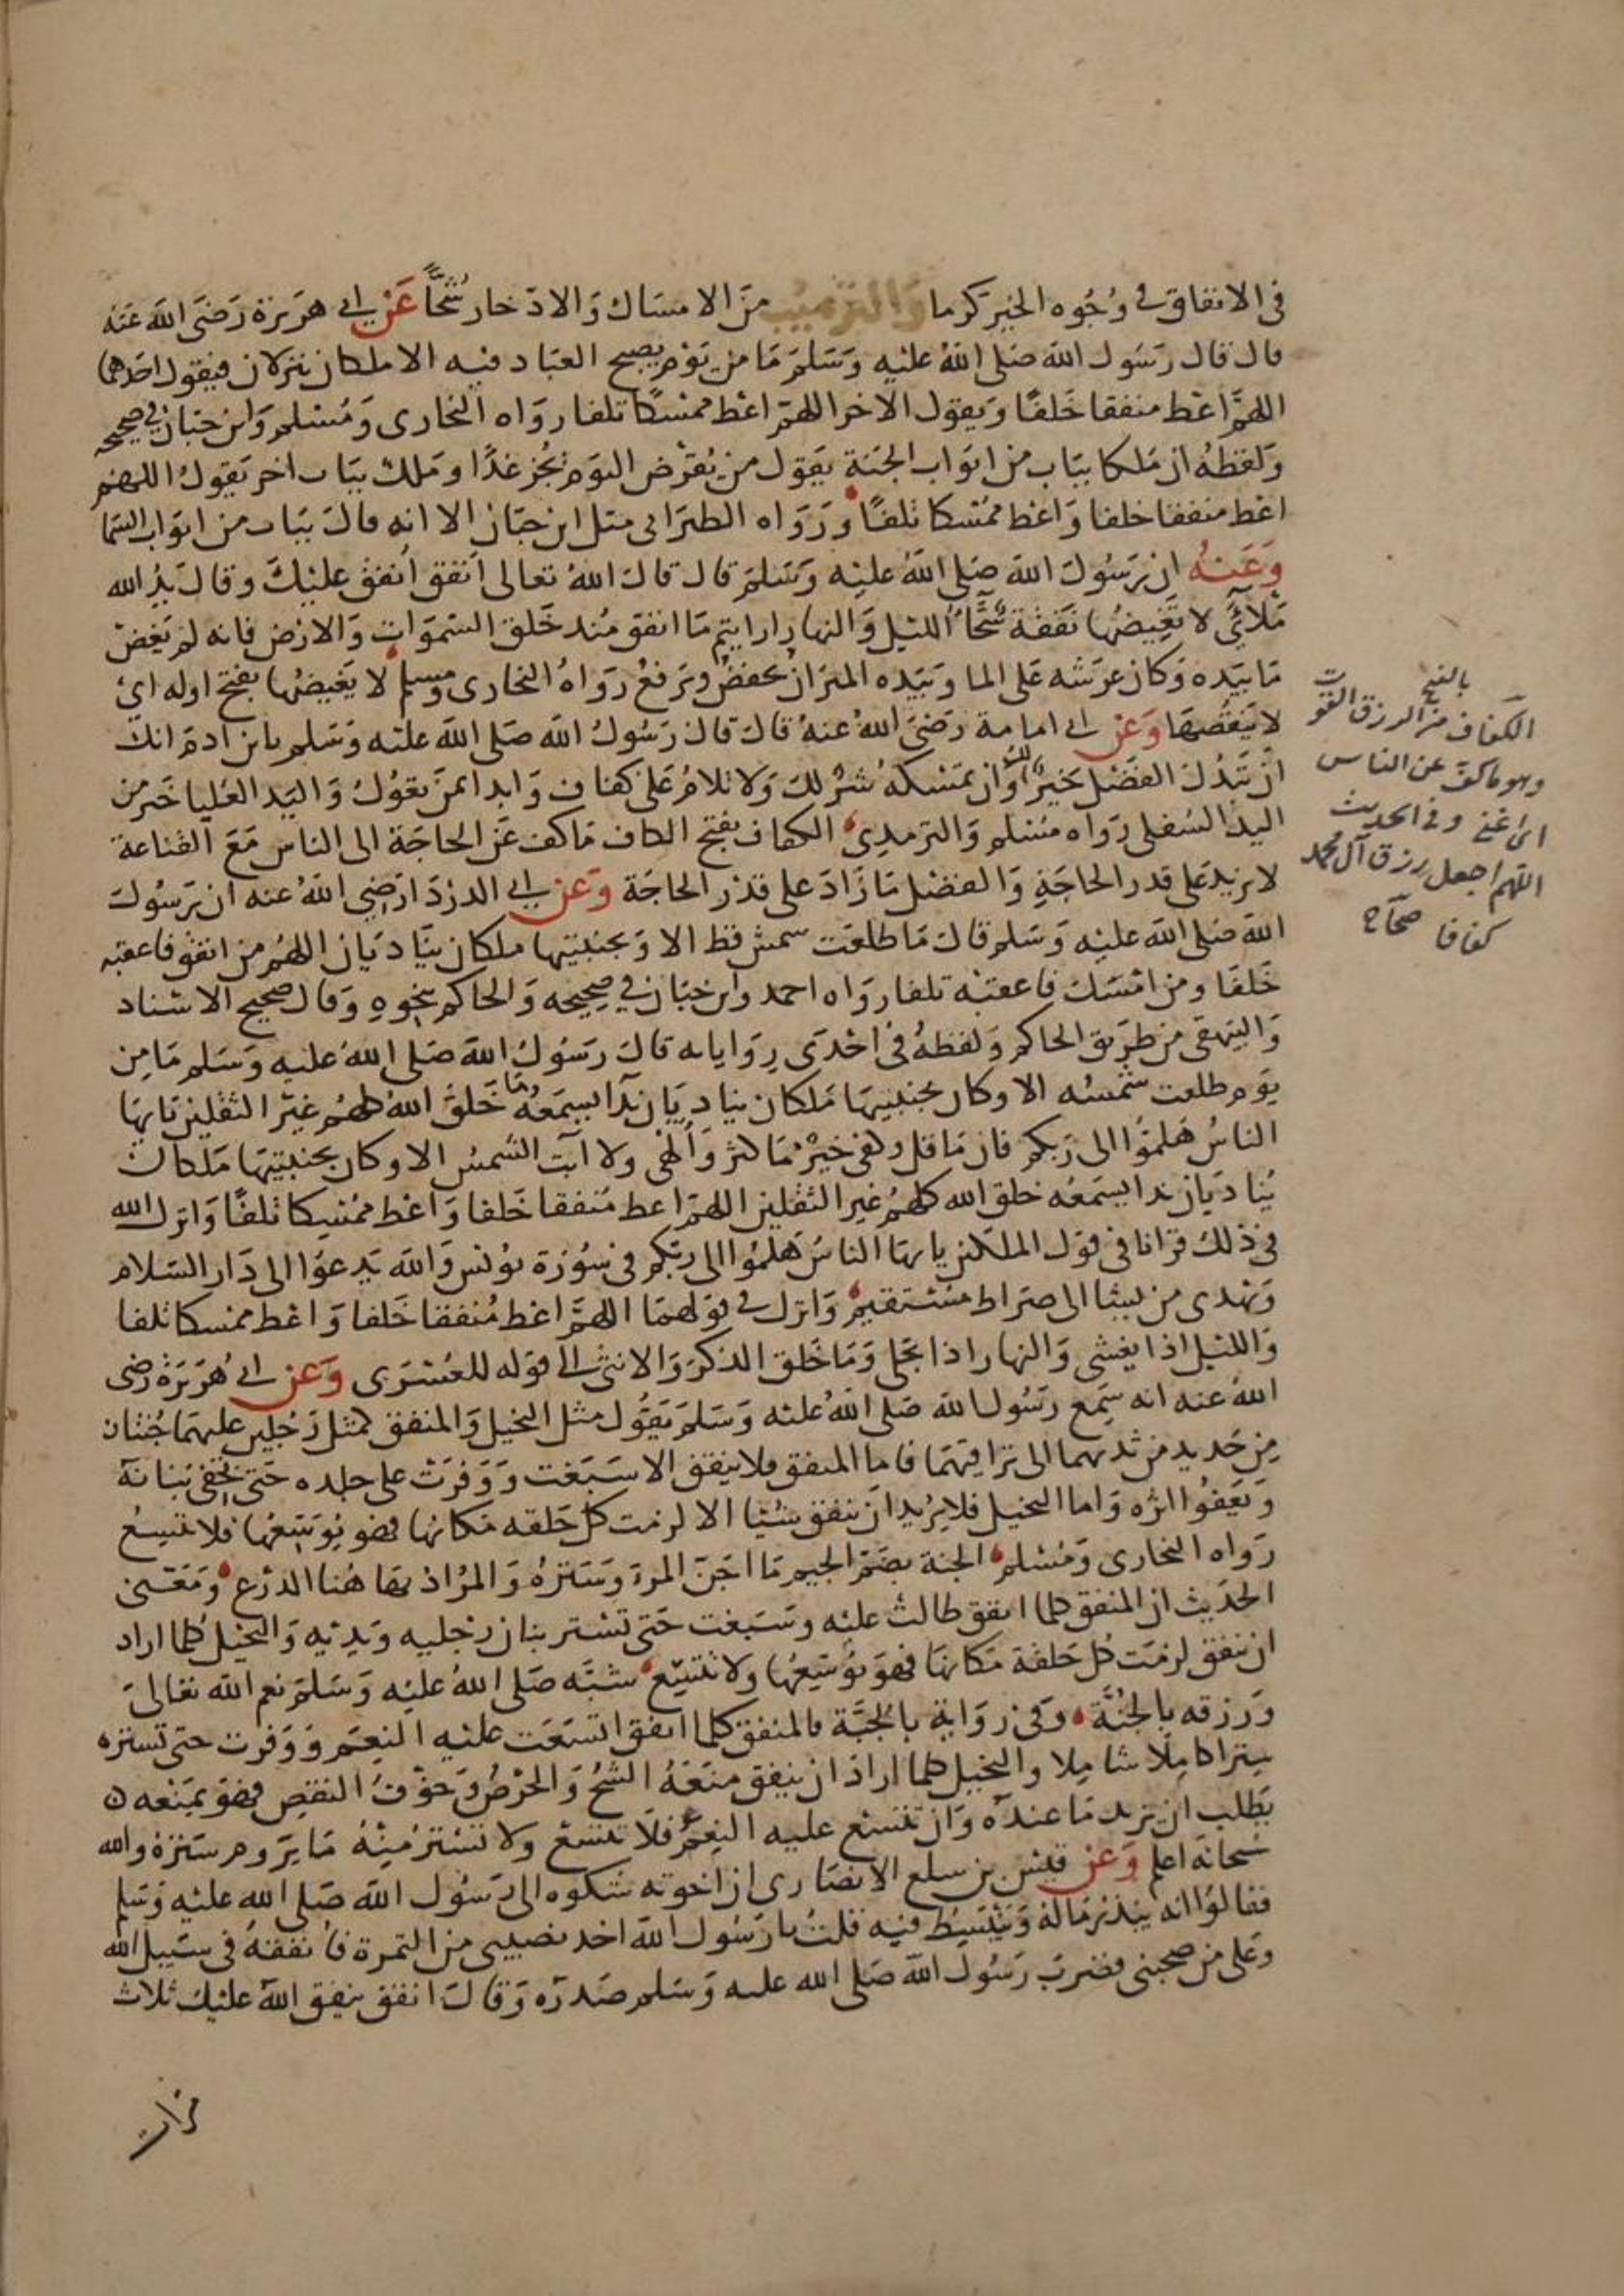 في الانفاق في وُجُوه الخير كرما وَالترهيب مِنَ الامسَاك وَالادّخار شُحًّا عَن ابي هرَيرَة رَضيَ اللهُ عَنهُ
قال قال رَسُول الله صَلى اللهُ عليه وَسَلمَ مَا مِن يَوْم يصبح العبَاد فيه الا ملكان ينزلان فيقول احَدهما
اللهمَّ اعْط منفقا خَلفًا وَيقول الاخر اللهمّ اعْط ممْسكًا تلفا روَاه البخارى وَمُسْلم وَابن حبَان في صحيحه
وَلفظهُ ان مَلكا ببَاب من ابوَاب الجَنة يقول من يُقرْض اليوَم يُجْز غدًا وملك ببَاب اخر يَقولُ اللهمّ
اعْط منفقا خلفا وَاعْط ممْسكا تلفًا وَرَوَاه الطبرَانى مثل ابن حبّان الا انه قالَ ببَاب من ابوَاب السّما
وَعَنهُ ان رَسُولَ الله صَلى اللهُ عليه وَسَلمَ قال قالَ اللهُ تعالى اَنفق اُنفق عليْكَ وقالَ يَدُ الله
مَلآَى لا تَغِيضُها نَفقة سَحَّآءُ الليْل وَالنهار ارايتم مَا انفق مُنذ خَلقَ السّموَاتِ وَالارْض فانه لم يَغِضْ
مَا بيَده وَكان عرشه عَلى الما وَبيَده الميزَانُ يخفضُ وَيَرفعُ رَوَاهُ البخارى وَمسلم لا يَغيضُها بفتح اوله اىْ
لا يَنقصُهَا وَعَن ابي امامة رَضيَ اللهُ عنهُ قالَ قال رَسُولُ الله صَلى الله عليْه وَسَلم يا ابن آدمَ انكَ
انْ تَبْذُلَ الفَضْل خيرٌ لكَ وَان تمسكهُ شرٌّ لكَ وَلا تلامُ عَلى كفاف وَابدا بمَن تعُولُ وَاليَد العُليا خَير من
اليَد السُفلى رَوَاه مسْلم وَالترمِذى الكفاف بفتح الكاف مَا كف عَن الحاجَة الى الناس مَعَ القناعة
لا يزيد عَلى قدر الحاجَةِ وَالفضْل مَا زَادَ على قدْر الحاجَة وَعَن ابي الدرْدَا رَضِيَ اللهُ عنه ان رَسُولَ
الله صَلى الله عليْه وَسَلم قالَ مَا طلعَت شمسٌ قط الا وَبجنبتيها ملكان ينَاديَان اللهُم من انفق فاعقبه
خَلفًا ومن امْسَك فاعقبْه تلفا روَاه احمد وابن حبَان في صحِيحه وَالحاكم بنحوه وَقال صحيح الاسْناد
وَالبَيهقى من طرَيق الحاكم وَلفظهُ في احْدَى رِوَاياته قالَ رَسُول الله صَلى الله عليه وَسَلم مَا من
يوَم طلعت شمْسُه الا وكان بجنبتيهَا مَلكان يناديَان ندَآ يسمَعُهُ مَا خَلقَ اللهُ كلهُم غيْر الثقلين يَا ايهَا
الناسُ هَلموُا الى رَبكم فان مَا قل وكفى خيْرٌ ممَا كثر وَاَلْهَى ولا آبَت الشمسُ الا وكان بجنبتيْهَا مَلكان
يُنادَيان ندَا يسمَعُه خلق الله كلهُم غير الثقلين اللهمّ اعط مُنفقا خَلفا وَاعْط ممْسِكا تلفًا وَانزل الله
في ذلك قرْانا في قول الملكين يا ايهَا الناسُ هَلمُوا الى ربّكم في سُورَة يُونس وَالله يَدعوُا الى دَار السّلام
وَيَهْدى من يشَا الى صرَاط مسْتقيم وَانزل في قولهمَا اللهمَّ اعْط مُنفقا خَلفا وَاعْط ممْسكا تلفا
وَالليْل اذا يغشى وَالنهار اذا تجَلى وَمَا خَلق الذكرَ وَالانثى الى قوَله للعُسْرَى وَعَن ابي هُرَيرَة رضى
اللهُ عنه انه سمِع رَسُول الله صَلى اللهُ عليْه وَسَلمَ يَقُول مثل البخيل وَالمنفق كمثل رَجُلين عليهمَا جُنتان
مِن حَديد من ثديهما الى ترَاقيهمَا فاما المنفق فلا ينفق الا سَبَغت وَوَفرَت على جلده حَتى تخفى بَنانهَ
وَتَعفُوا اثره وَاما البخيل فلا يرُيد ان ينفق شيْئا الا لزمَت كل حَلقه مَكانها فهو يُوَسّعُها فلا تتسِعُ
رَوَاه البخارى وَمُسْلم الجنة بضمّ الجيم مَا اجَنّ المرءَ وَسَترَهُ وَالمرُاد بهَا هُنا الدرْع وَمَعْنى
الحَديث ان المنفق كلما انفق طالتْ عليْه وسَبَغت حَتى تسْتر بنان رجْليه وَيدَيْه وَالبخيْل كلما اراد
ان ينفق لزمَت كل حَلقة مَكانهَا فهوَ يُوَسّعُها وَلا تتّسِع شبّهَ صَلى اللهُ عليْه وَسَلمَ نعم الله تعَالىَ
وَرزقه بالجُنَّة وَفى رِوَاية بالجُبَّة فالمنفق كلما انفق اتسَعَت عليْه النِعَم وَوَفرت حتى تسترهَ
سِترًا كامِلًا شامِلا والبخيل كلما ارادَ ان ينفق منَعَهُ الشُحّ وَالحرْصُ وَخوْفُ النقصِ فهوَ بمَنعه
يَطلب ان يزيد مَا عندَه وَان تتسع عليه النِعَمُ فلَا تتسع ولا تسْتر مِنْهُ مَا يَروم سَترَهُ والله
سُبحانهَ اعلم وَعَن قيسْ بن سلع الانصَارى ان اخوَته شكوه الى رَسُول الله صَلى الله عليْه وَسَلم
فقالوُا انه يبذرُ مَاله وَيَنْبَسِطُ فيه قلتُ يا رَسُول الله اخذ نصيبي من التمرة فأنفقهُ في سَبيل الله
وعَلى من صحبنى فضرَبَ رَسُولُ الله صَلى الله عليه وَسَلم صَدرَه وَقالَ انفق ينفق الله عليْك ثلاث
مرات
بالفتح
الكفاف من الرزق القوت
وهو ما كفّ عن الناس
اىْ اغنى وفى الحديث
اللهم اجعل رزق آل محمد
كفافا صحاح